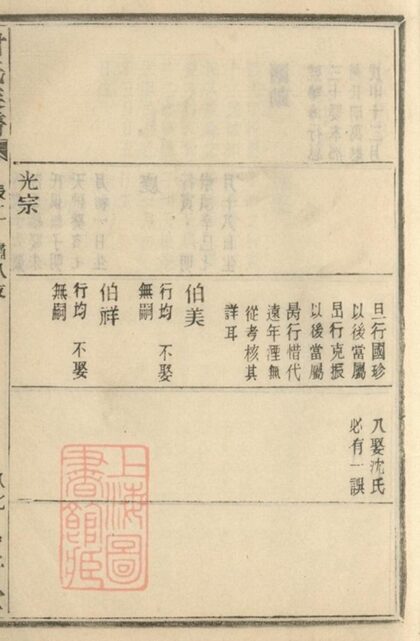 旦行國珍
以後當屬
行克振
以後當屬
行惜代
遠年湮無
從考核其
詳耳
娶沈氏
必有一誤
伯美
行均 不娶
無嗣
伯祥
行均 不娶
無嗣
光宗
上海圖
書館藏